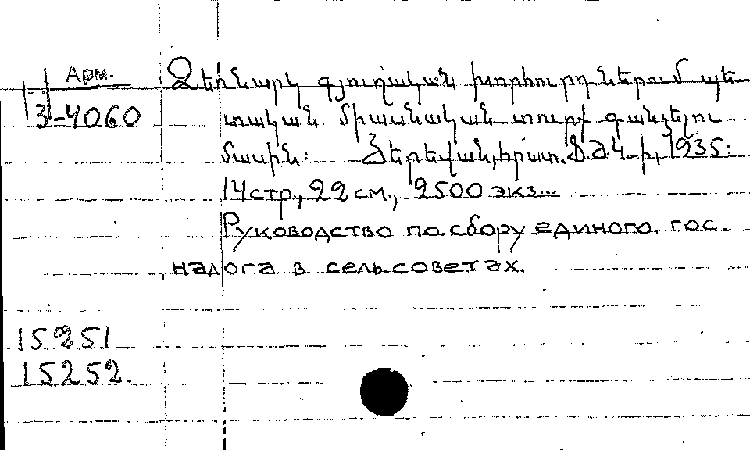 Арм.
3-4060
Ձեռնարկ գյուղական խորհուրդներում պե
տական միասնական տուրք գանձելու
մասին: Յերեվան, հրատ. 1935:
14 стр., 22 см., 2500 экз.
Руководство по сбору единого гос.
налога в сельсоветах.
15251
15252.